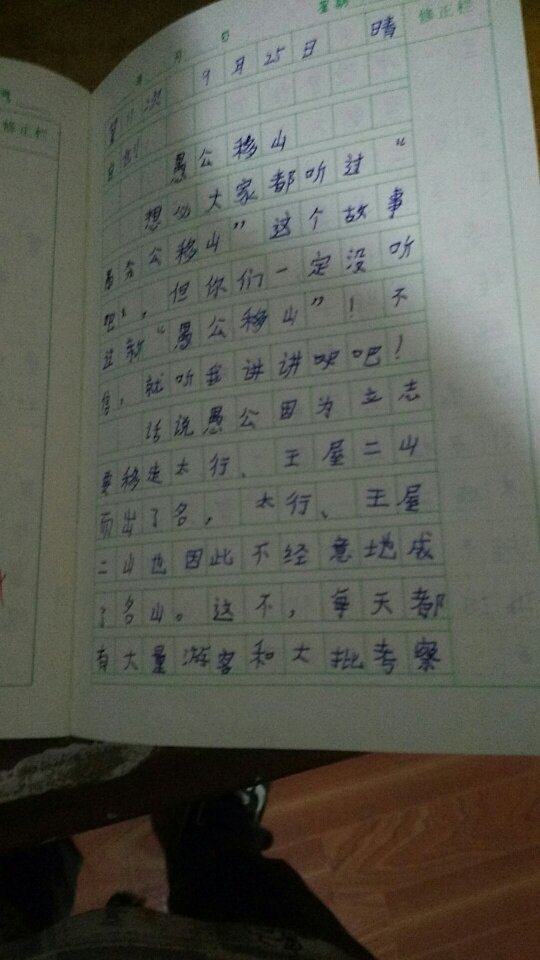 年 月 日 星期
修正栏
修正栏
9月25日 晴
第11次
愚公移山
想必大家都听过“
愚公移山”这个故事
吧，但你们一定没听
过新“愚公移山”！不
信，就听我讲讲吧！
话说愚公因为立志
要移走太行、王屋二山
而出了名，太行、王屋
二山也因此不经意地成
了名山。这不，每天都
有大量游客和大批考察